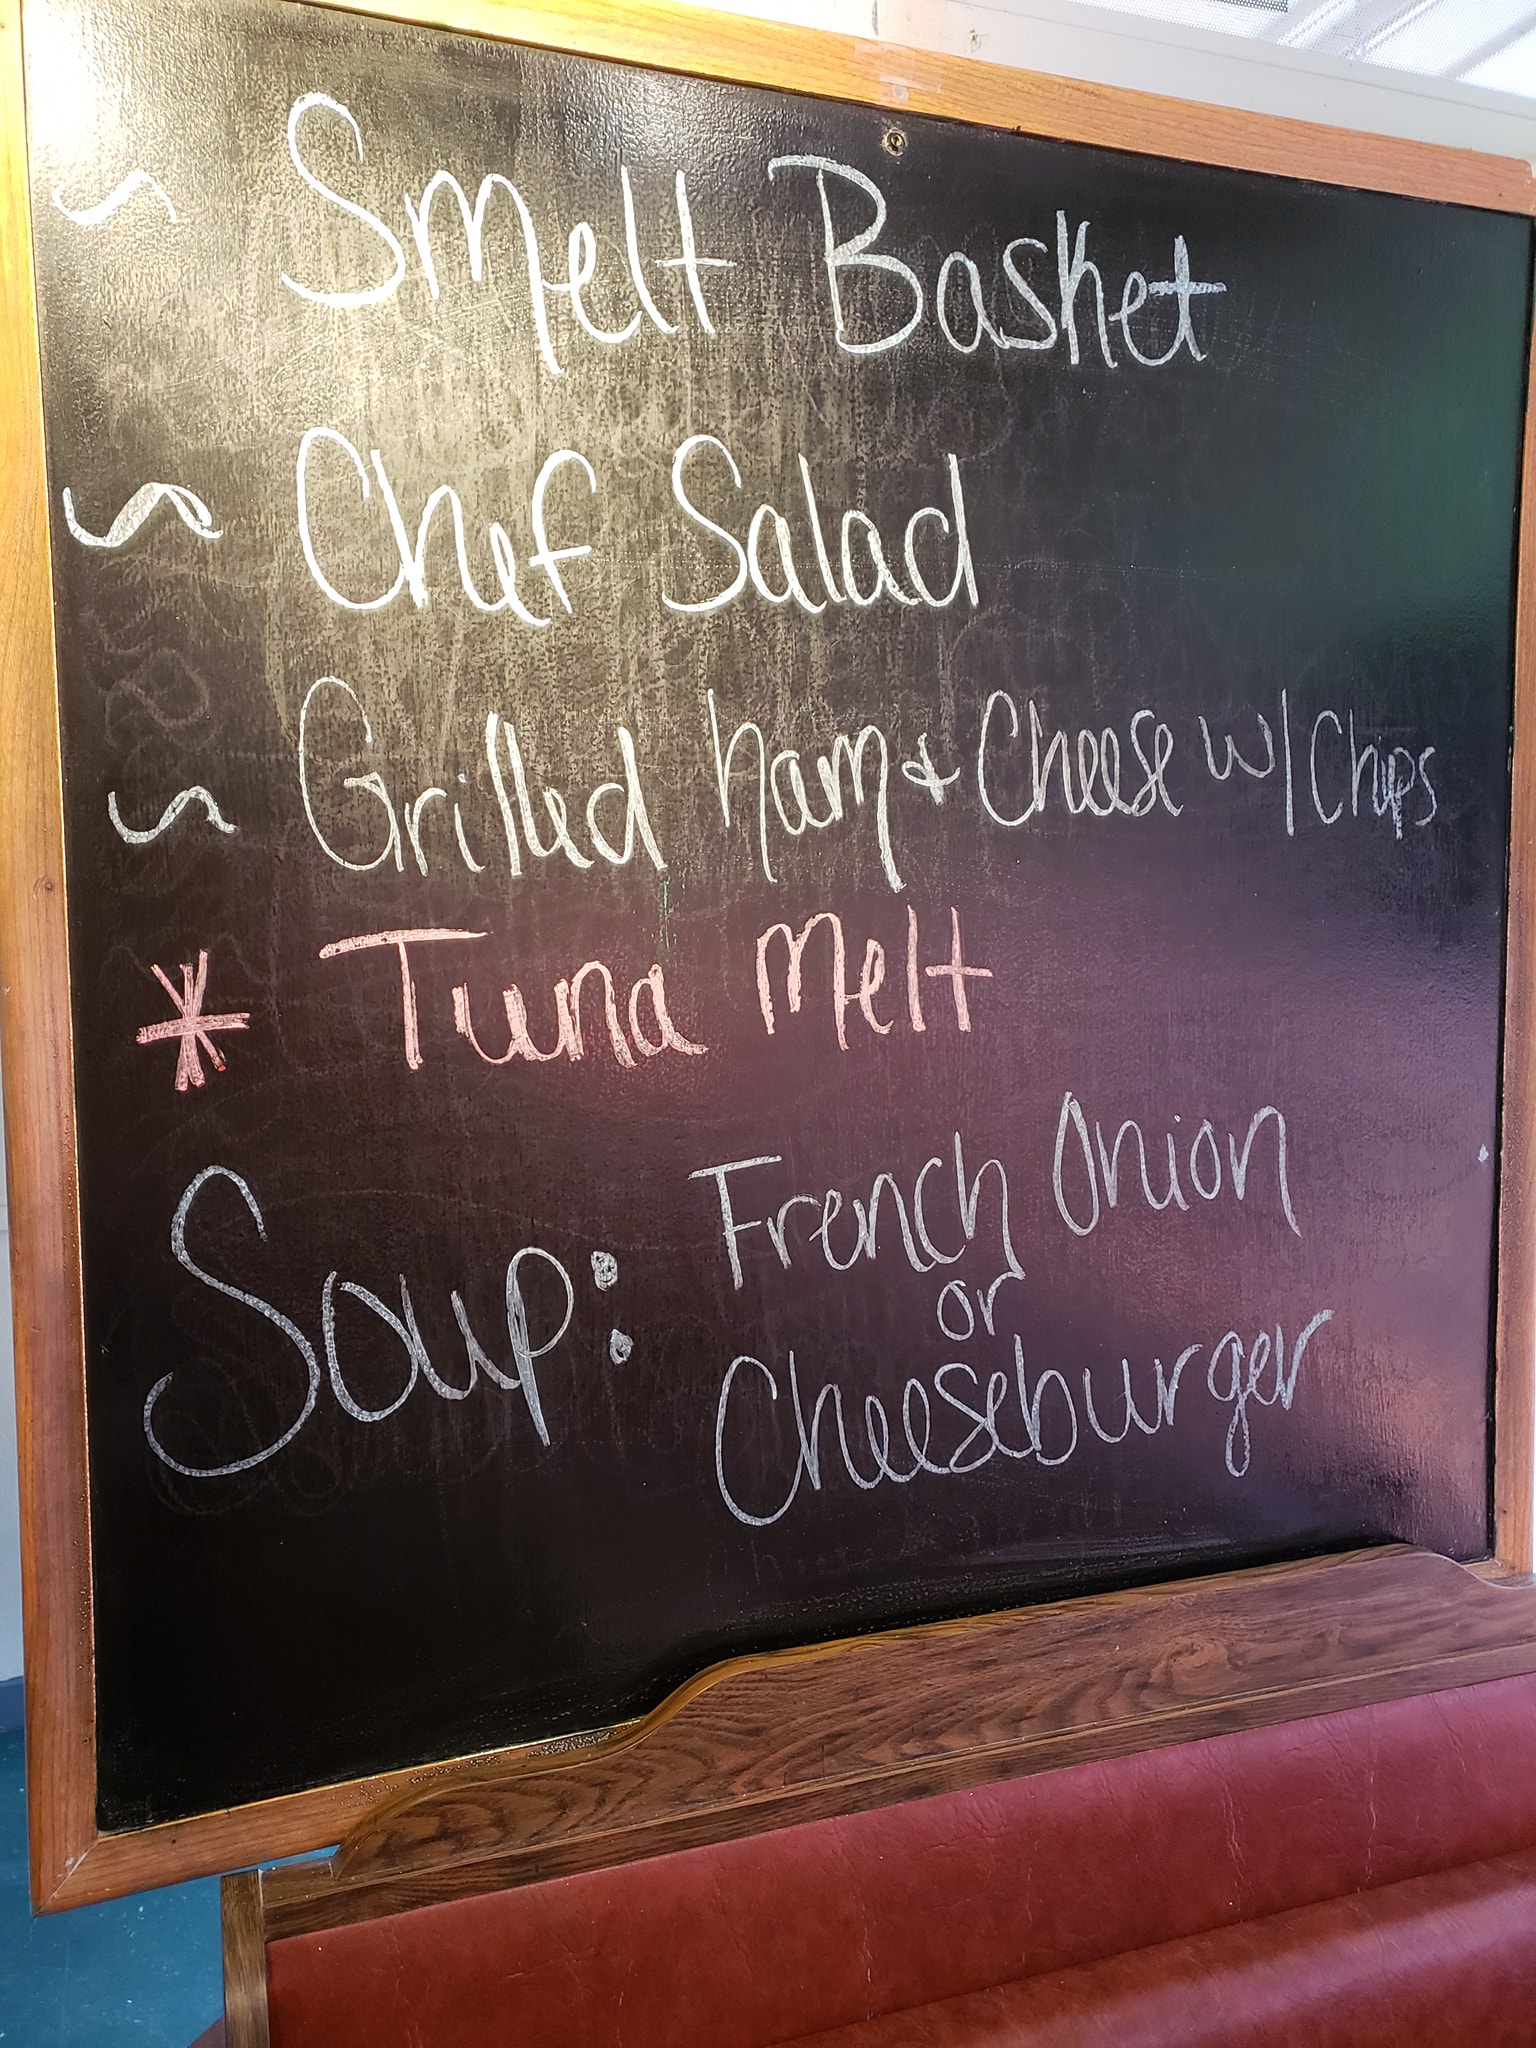 ~ Smelt Basket
~ Chef Salad
~ Grilled ham & Cheese w/ Chips
* Tuna Melt
Soup: French Onion
or
Cheeseburger